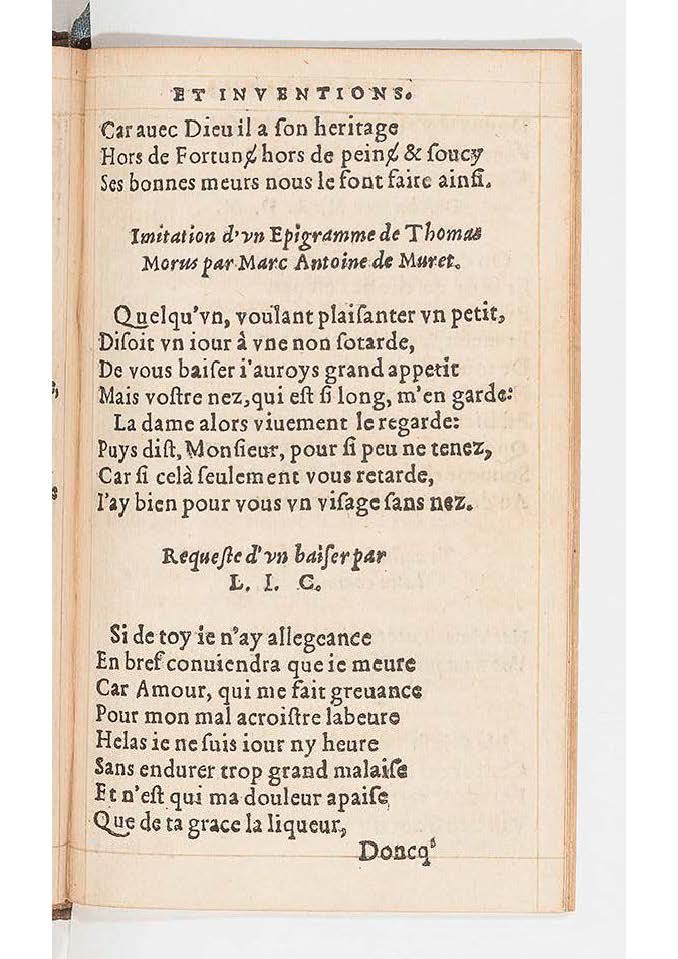 ET INVENTIONS.
Car auec Dieu il a ſon heritage
Hors de Fortunɇ hors de peinɇ & ſoucy
Ses bonnes meurs nous le font faire ainſi.
Imitation d'vn Epigramme de Thomas
Morus par Marc Antoine de Muret.
Quelqu'vn, voulant plaiſanter vn petit,
Diſoit vn iour à vne non ſotarde,
De vous baiſer i'auroys grand appetit
Mais voſtre nez, qui eſt ſi long, m'en garde:
La dame alors viuement le regarde:
Puys diſt, Monſieur, pour ſi peu ne tenez,
Car ſi celà ſeulement vous retarde,
I'ay bien pour vous vn viſage ſans nez.
Requeſte d'vn baiſer par
L. I. C.
Si de toy ie n'ay allegeance
En bref conuiendra que ie meure
Car Amour, qui me fait greuance
Pour mon mal acroiſtre labeure
Helas ie ne ſuis iour ny heure
Sans endurer trop grand malaiſe
Et n'eſt qui ma douleur apaiſe
Que de ta grace la liqueur,
Doncqꝰ